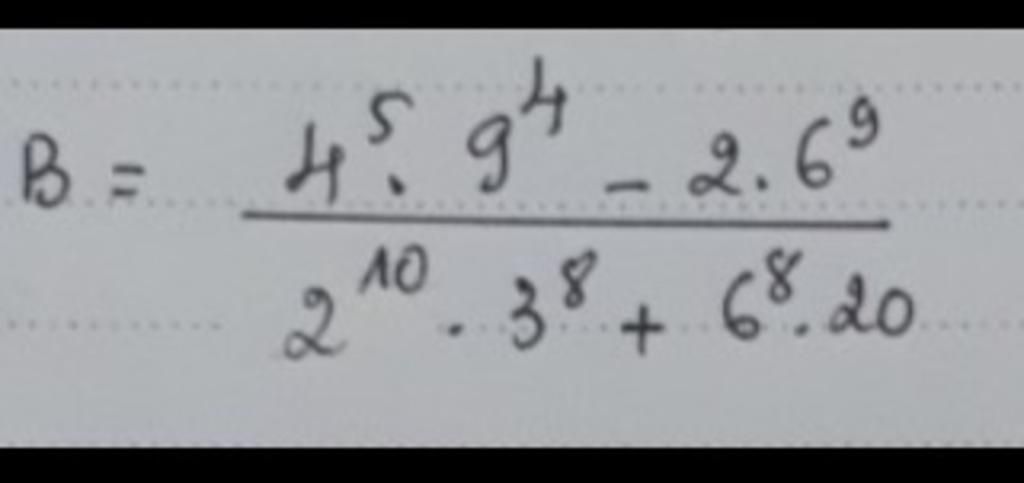 B = \frac{4^5 . 9^4 - 2 . 6^9}{2^{10} . 3^8 + 6^8 . 20}